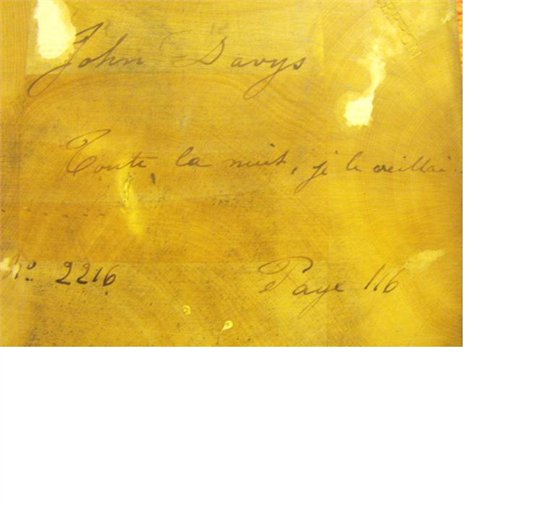 John Davys
Toute la nuit, je le veillai.
No 2216
Page 116